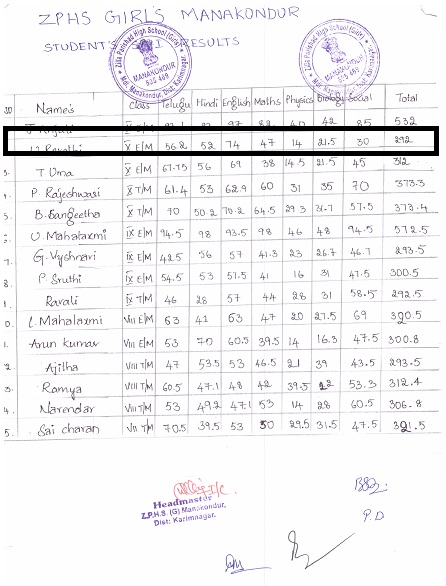 ZPHS GIRL'S MANAKONDUR
STUDENT'S RESULTS
Zilla Parishad High School (Girls)
MANAKONDUR
505 469
Mn. Manakondur, Dist: Karimnagar.
Name's Class Telugu Hindi English Maths Physics Biology Social Total
97 82 40 42 85 532
X E/M 56.2 52 74 47 14 21.5 30 292
T. Uma X E/M 67.75 56 69 38 14.5 21.5 45 312
P. Rajeshwari X T/M 61.4 53 62.9 60 31 35 70 373.3
B. Sangeetha X T/M 70 50.2 70.2 64.5 29.3 31.7 57.5 373.4
U. Mahalaxmi IX E/M 94.5 98 93.5 98 46 48 94.5 572.5
G. Vyshnavi IX E/M 42.5 56 57 41.3 23 26.7 46.7 293.5
P. Sruthi IX E/M 54.5 53 57.5 41 16 31 47.5 300.5
Ravali IX T/M 46 28 57 44 28 31 58.5 292.5
L. Mahalaxmi VIII E/M 63 41 63 47 20 27.5 69 320.5
Arun kumar VIII E/M 53 70 60.5 39.5 14 16.3 47.5 300.8
Ajilha VIII T/M 47 53.5 53 46.5 21 39 43.5 293.5
Ramya VIII T/M 60.5 47.1 48 42 39.5 22 53.3 312.4
Narendar VIII T/M 53 49.2 47.1 53 14 28 60.5 306.8
Sai charan VII T/M 70.5 39.5 53 50 29.5 31.5 47.5 321.5
I/C
Headmaster
Z.P.H.S. (G) Manakondur,
Dist: Karimnagar.
P.D